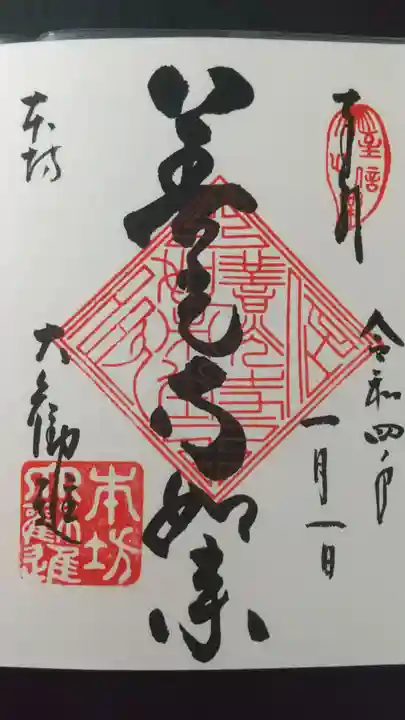 奉拝
令和四年
一月一日
善光寺如来
本坊
大勧進
善光寺
本坊
大勧進